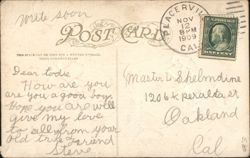 Write soon
POST CARD
PLACERVILLE
NOV
12
8PM
1909
CAL.
Dear Eddie
How are you
are you a good boy
Hope you are will
give my love
to all from your
old true friend
Steve
Master S. Shelmdine
1206 Peralta st
Oakland
Cal